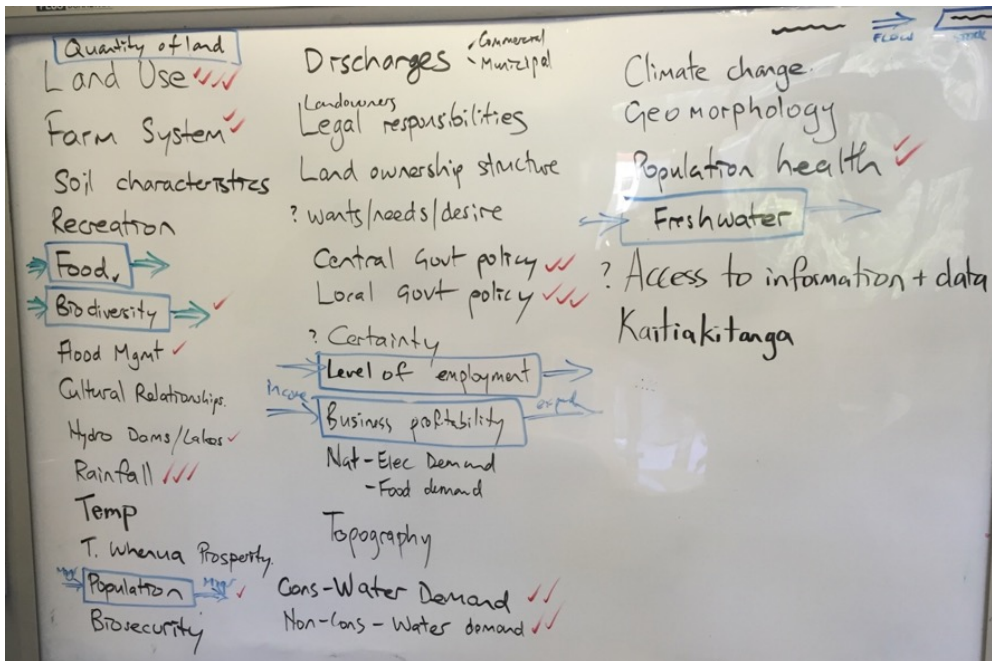 Quantity of land
Land Use
Farm System
Soil characteristics
Recreation
Food
Biodiversity
Flood Mgmt
Cultural Relationships.
Hydro Dams/Lakes
Rainfall
Temp
T. Whenua Prosperity.
Population
Biosecurity
Discharges
Commercial
Municipal
Landowners
Legal responsibilities
Land ownership structure
? wants/needs/desire
Central Govt policy
Local Govt policy
? Certainty
Level of employment
income
Business profitability
Nat-Elec Demand
-Food demand
Topography
Cons-Water Demand
Non-Cons-Water demand
FLOW
Climate change.
Geomorphology
Population health
Freshwater
? Access to information + data
Kaitiakitanga